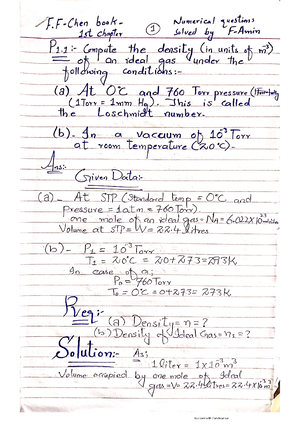 F.F-Chen book-
1st chapter
①
Numerical questions
solved by F-Amin
P1.1:- Compute the density (in units of m⁻³)
of an ideal gas under the
following conditions:-
(a) At 0°C and 760 Torr pressure
(1 Torr = 1mm Hg). This is called
the Loschmidt number.
(b)- In a vaccum of 10⁻³ Torr
at room temperature (20°C)-
Ans:-
Given Data:-
(a)- At STP (Standard temp = 0°C and
Pressure = 1atm = 760 Torr)
one mole of an ideal gas = NA = 6.022x10²³
Volume at STP = V = 22.4 litres
(b)- P1 = 10⁻³ Torr
T1 = 20°C = 20+273 = 293K
In case of a;
P0 = 760 Torr
T0 = 0°C = 0+273 = 273K
Req:-
(a) Density = n = ?
(b) Density of Ideal Gas = n1 = ?
Solution:- As:
1 liter = 1x10⁻³m³
Volume occupied by one mole of Ideal
gas = V = 22.4 litres = 22.4x10⁻³m³